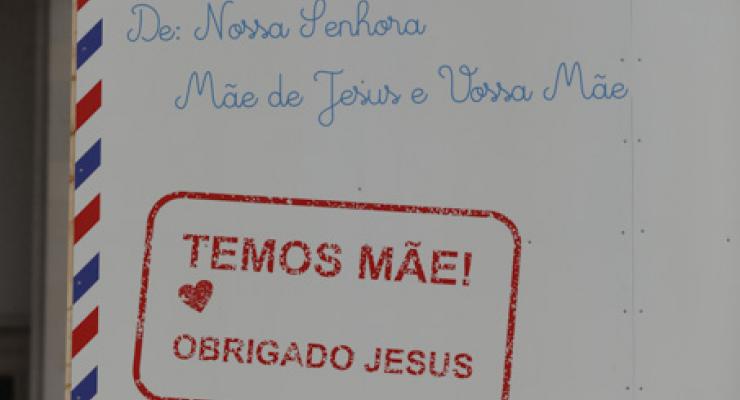 De: Nossa Senhora
Mãe de Jesus e Vossa Mãe
TEMOS MÃE!
OBRIGADO JESUS